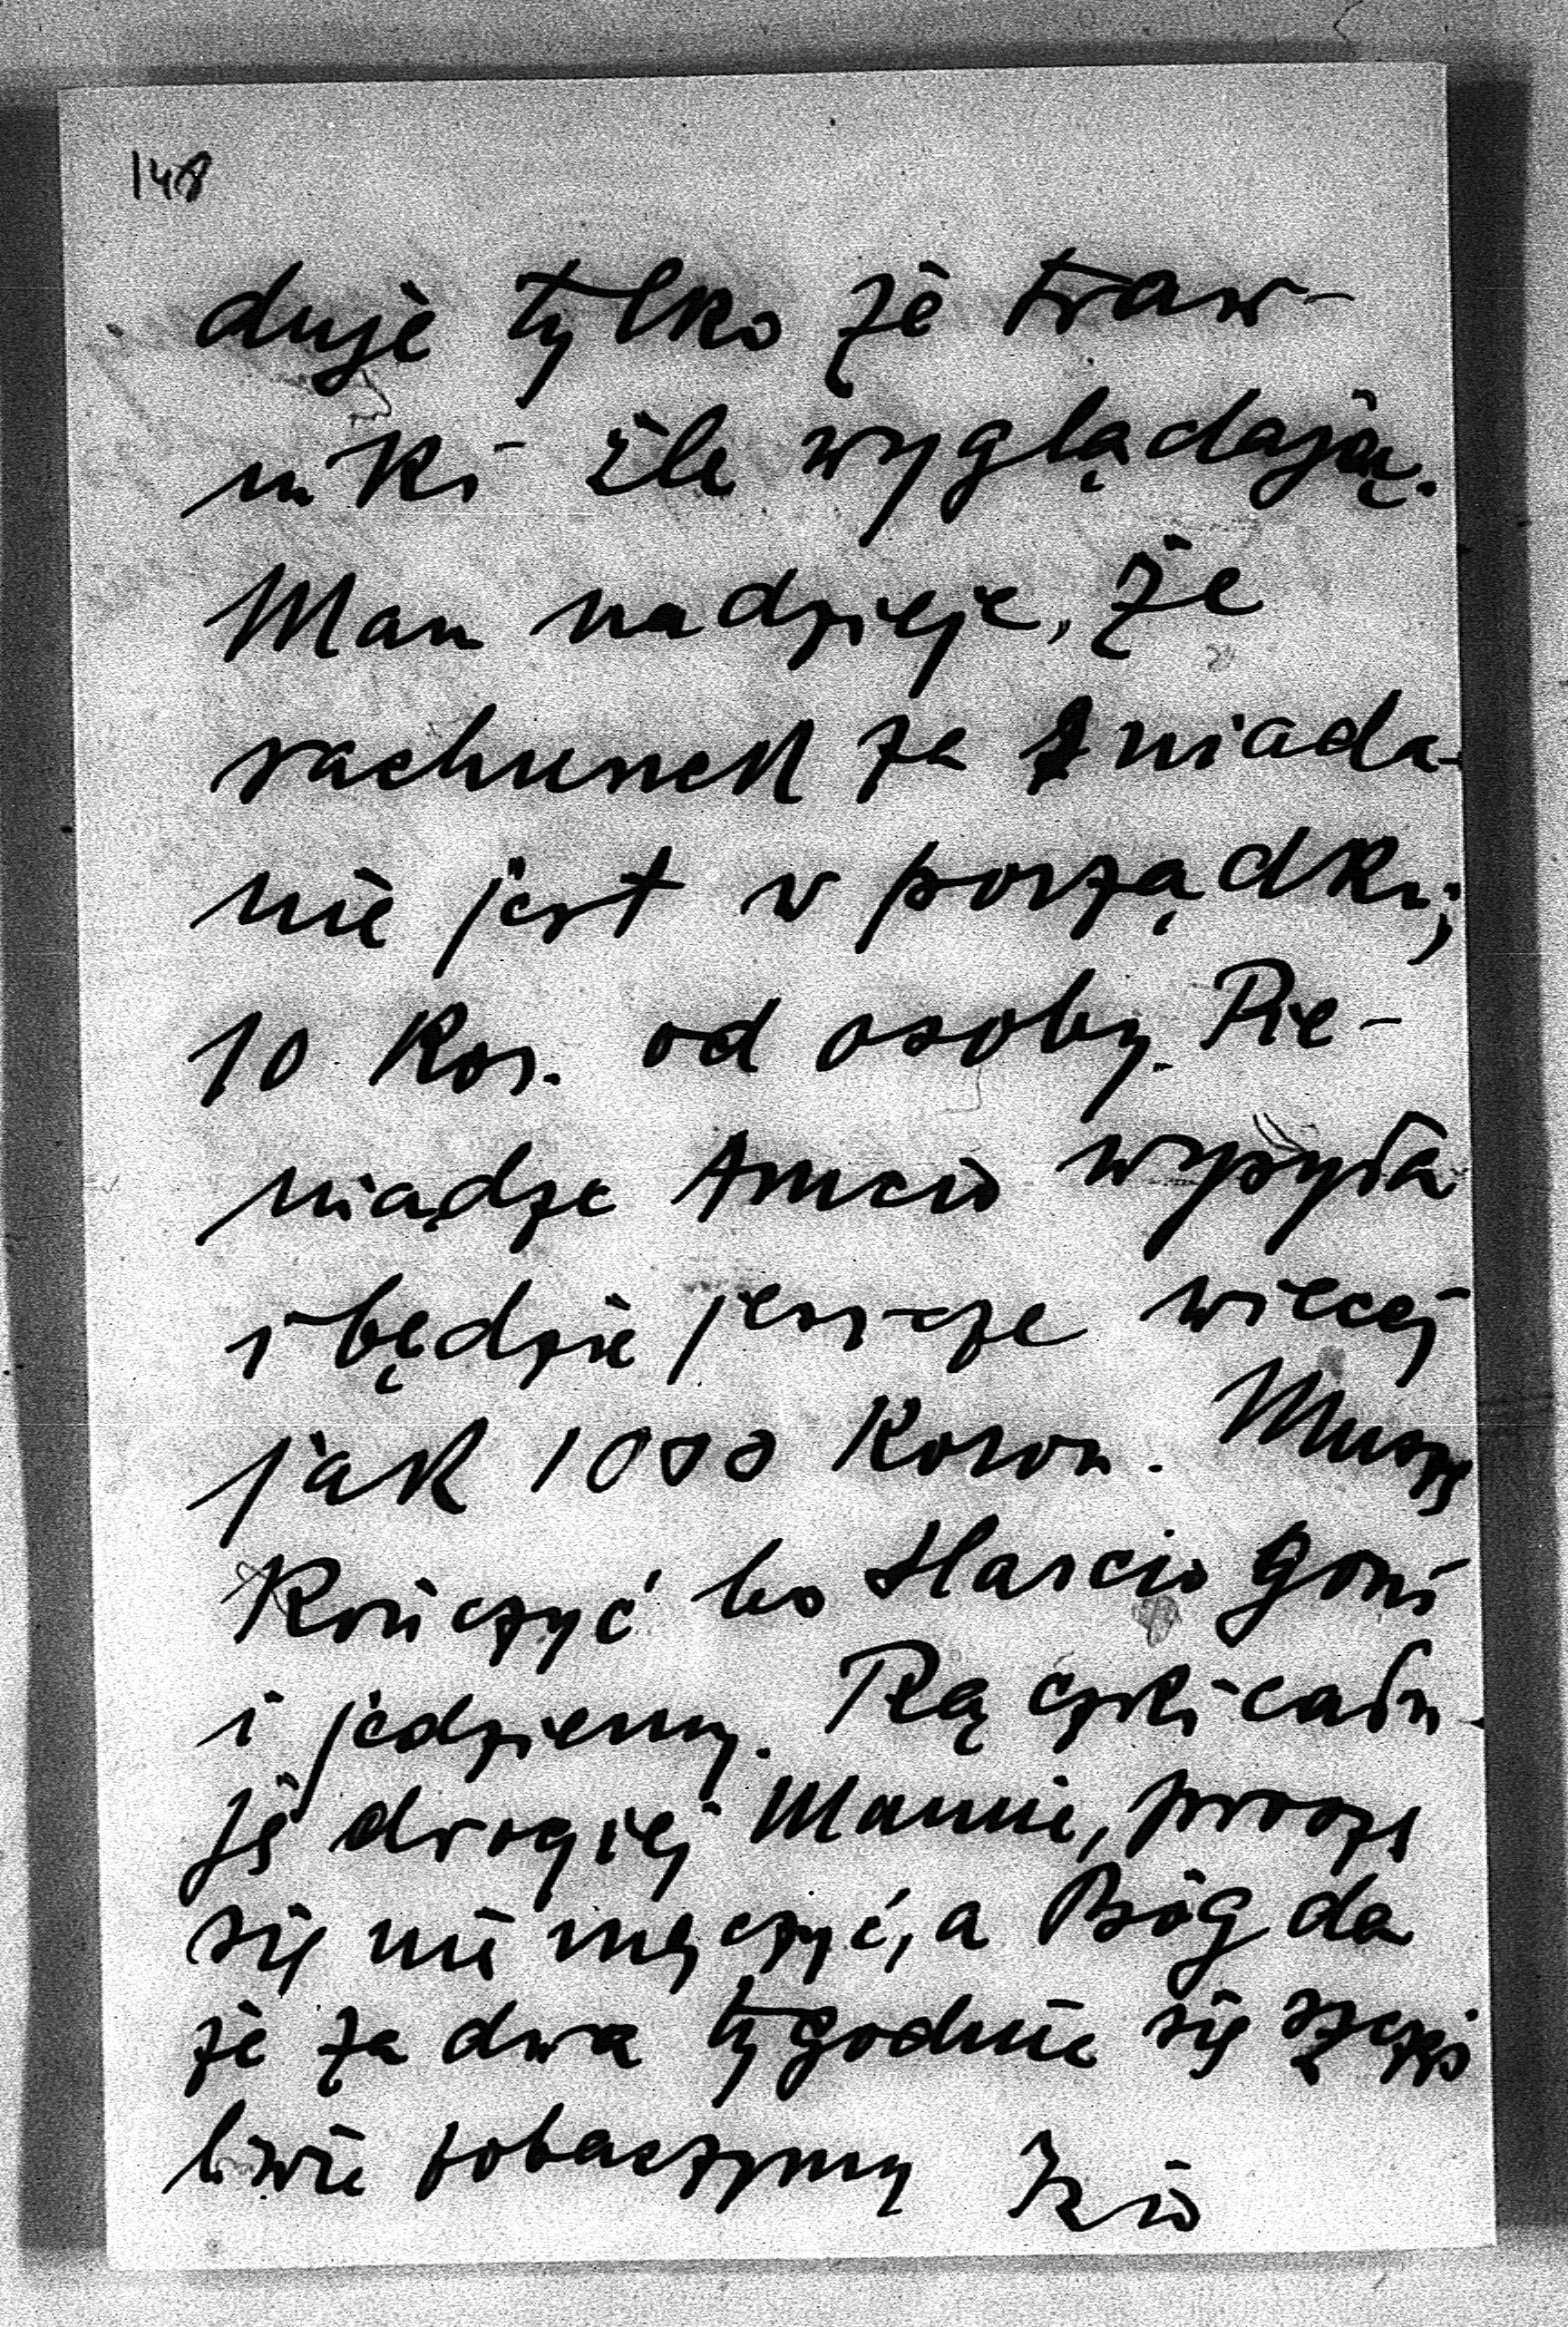 148
duje tylko że traw-
niki źle wyglądają.
Mam nadzieję, że
rachunek za śniada-
nie jest w porządku;
10 Kor. od osoby. Pie-
niądze Amcio wysyła
i będzie jeszcze więcej
jak 1000 Koron. Muszę
Kończyć bo Starcio goni
i jedziemy. Rączki cału-
ję drogiej Mamie, proszę
się nie męczyć, a Bóg da
że za dwa tygodnie się szczęś
liwie zobaczymy Izio